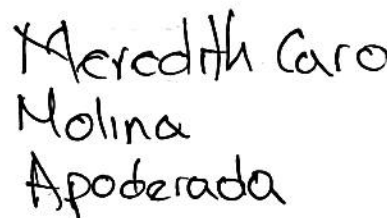 Meredith Caro
Molina
Apoderada